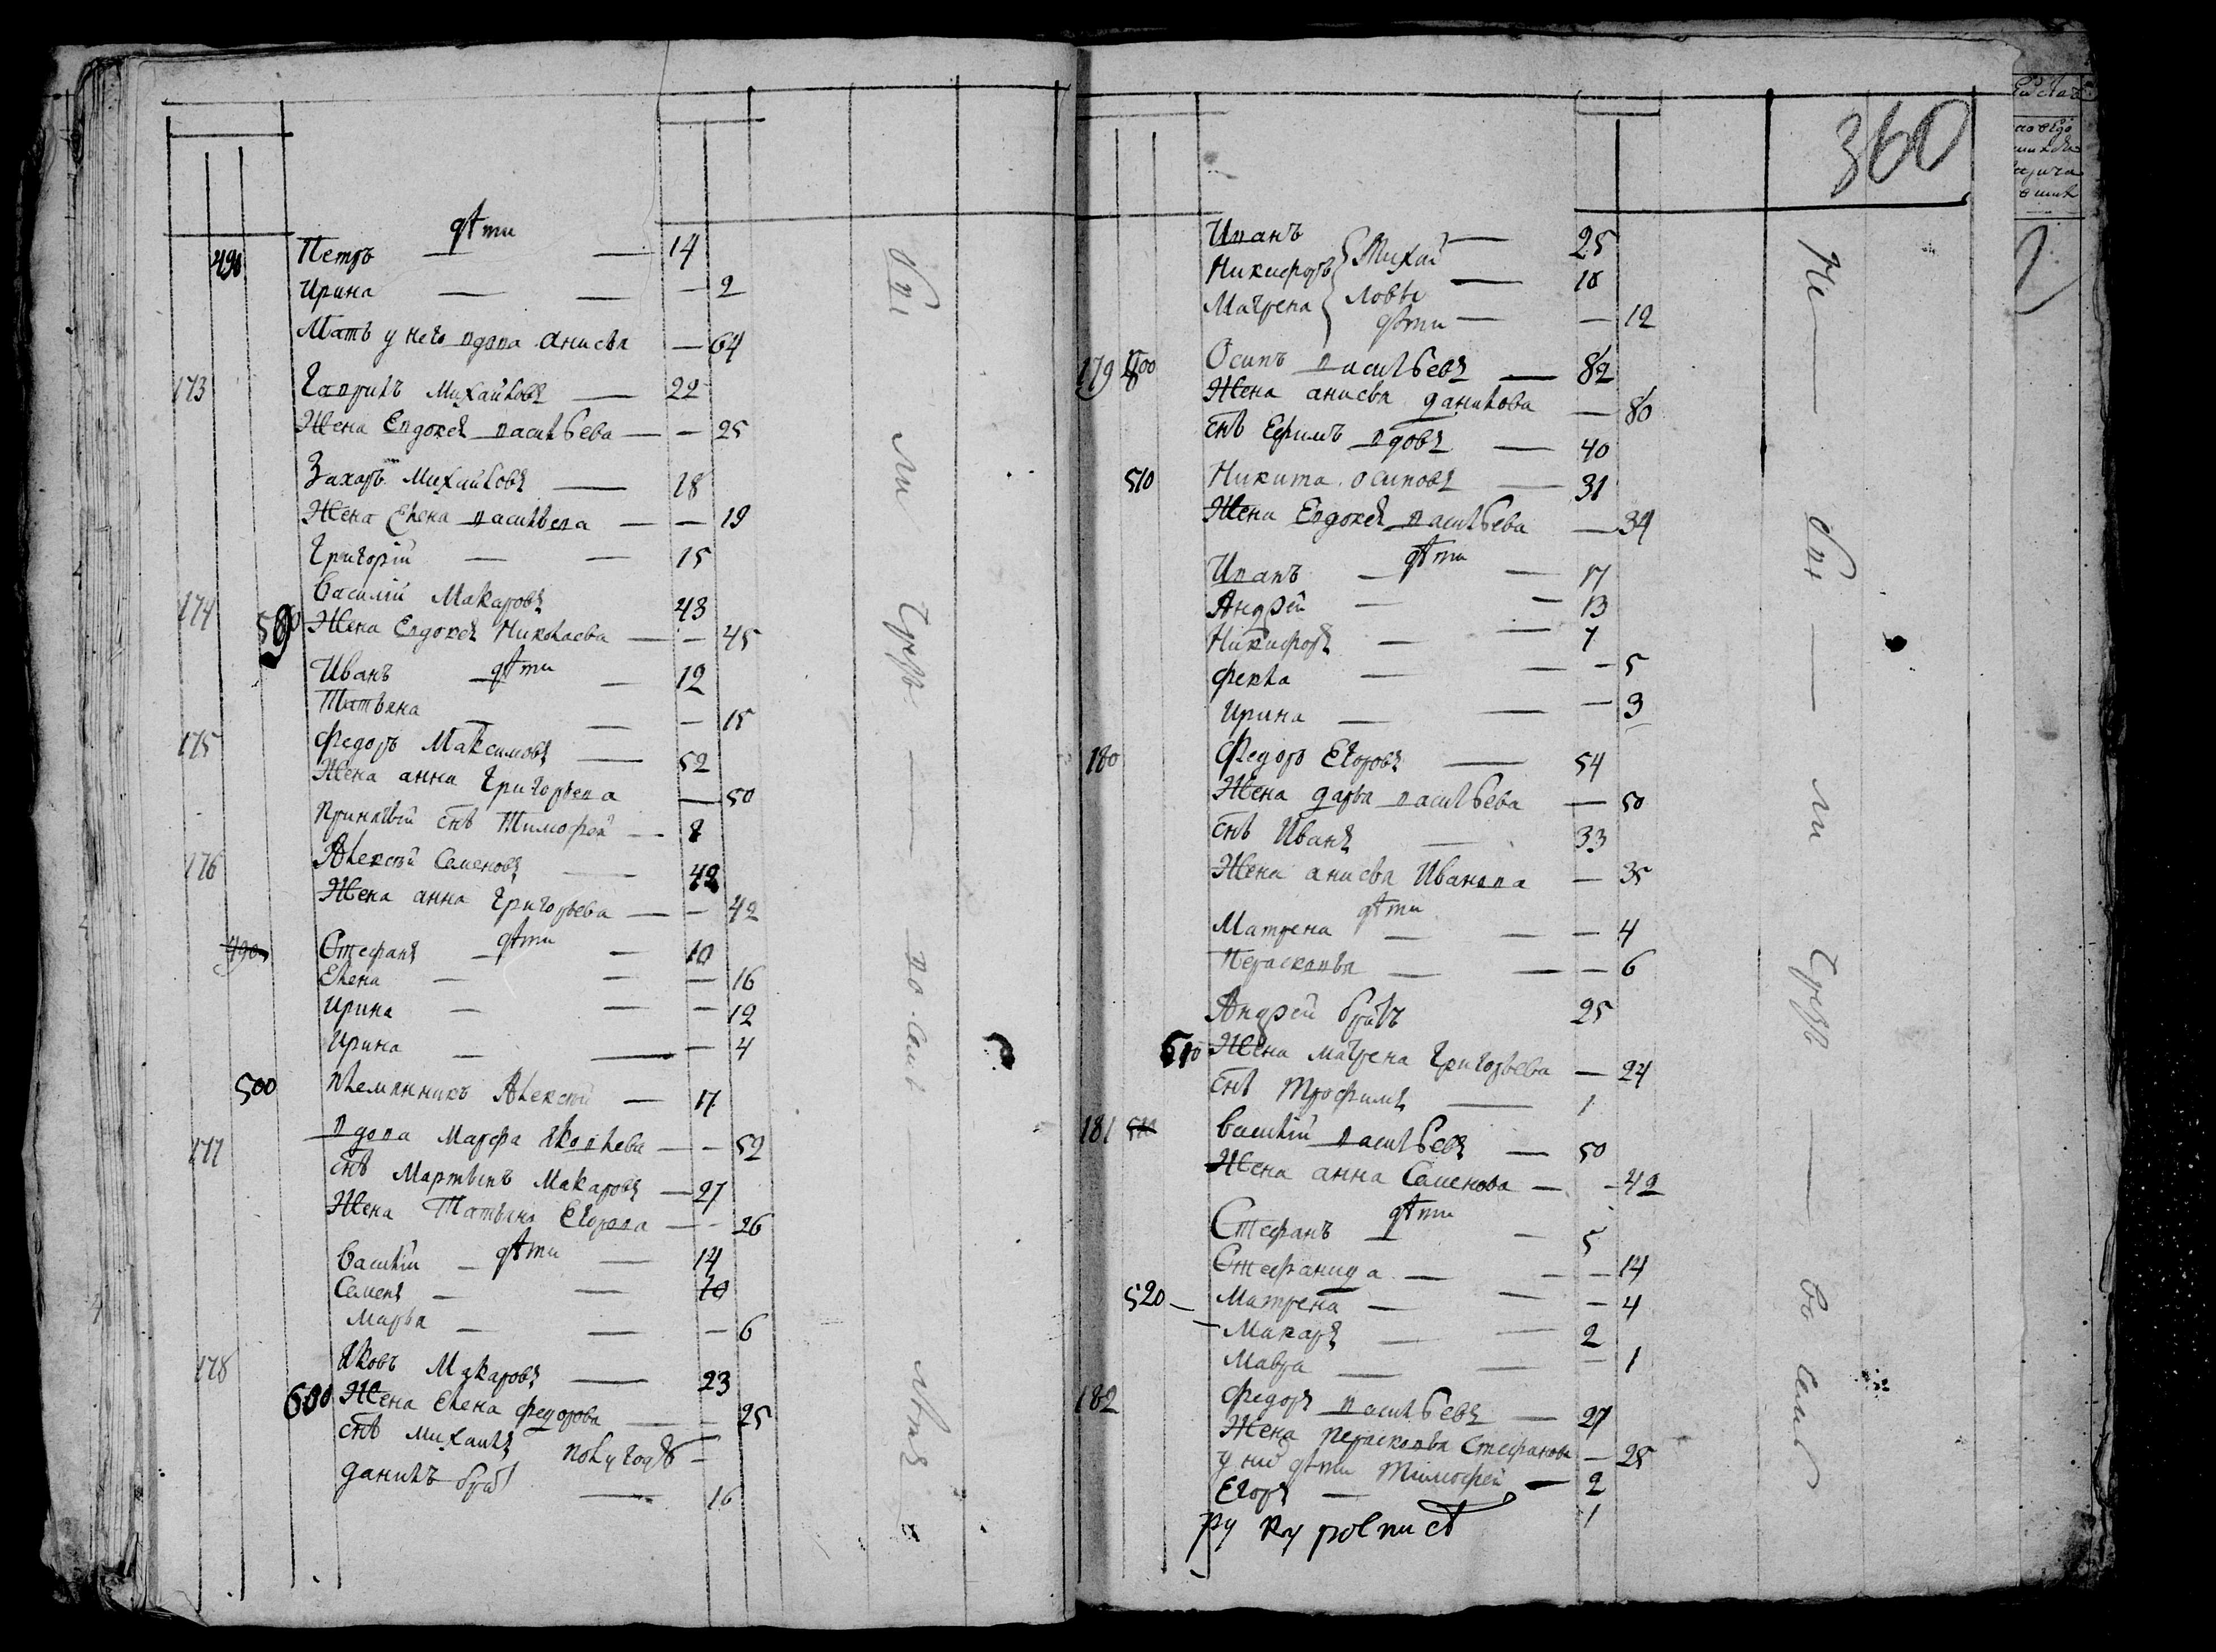 дѣти
490 Петръ — — 14
Ирина — — — 2
Мать у него вдова Анисья — 64
173 Гаврилъ Михайловъ — 22
Жена Евдокея Васильева — — 25
Захаръ Михайловъ — 18
Жена Елена Васильева — — 19
Григорій — — 15
174 Василій Макаровъ 43
Жена Евдокея Николаева — — 45
Иванъ дѣти — 12
Татьяна — — 15
175 Федоръ Максимовъ — 52
Жена Анна Григорьева — 50
Снъ Тимофей — 8
176 Алексѣй Семеновъ — 42
Жена Анна Григорьева — — 42
490 Стефанъ — дѣти — 10
Елена — — — 16
Ирина — — — 12
Ирина — — — 4
500 племянникъ Алексѣй — 17
177 вдова Марфа Яковлева — — 52
Снъ Мартынъ Макаровъ — 27
Жена Татьяна Егорова — — 26
Василій — дѣти — 14
Семенъ — — 10
Марья — — — 6
178 Яковъ Макаровъ — 23
600 Жена Елена Федорова — — 25
Снъ Михаилъ полугода —
Данилъ братъ — 16
360
Иванъ — 25
Никифоръ Михай — 10
Матрена ловы — — 12
дѣти
179 Осипъ Васильевъ — 82
Жена Анисья Данилова — 80
Снъ Ефимъ вдовъ — 40
510 Никита Осиповъ — 31
Жена Евдокея Васильева — 34
дѣти
Иванъ — — 17
Андрей — — 13
Никифоръ — — 7
Фекла — — — 5
Ирина — — — 3
180 Федоръ Егоровъ — 54
Жена Дарья Васильева — 50
Снъ Иванъ — 33
Жена Анисья Иванова — 35
дѣти
Матрена — — — 4
Перасковья — — — 6
Андрей братъ 25
610 Жена Матрена Григорьева — 24
Снъ Трофимъ — 1
181 Василій Васильевъ — 50
Жена Анна Семенова — — 42
дѣти
Стефанъ — — 5
Стефанида — — — 14
520 — Матрена — — — 4
— Макаръ — — 2
Мавра — — — 1
182 Федоръ Васильевъ — 27
Жена Перасковья Стефанова — 25
у них дѣти Тимофей — 2
Егоръ — 1